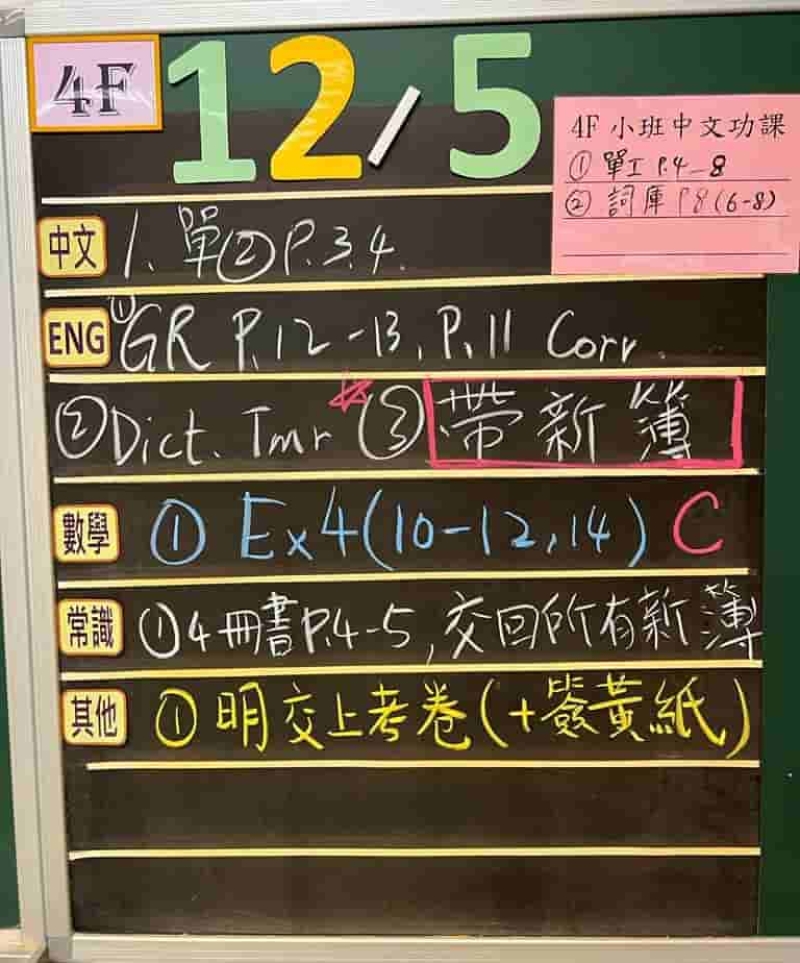 4F 12/5
4F 小班中文功課
① 單工 P.4-8
② 詞庫 P8(6-8)
中文 1. 單② P.3,4.
ENG ①GR P.12-13, P.11 Corr.
②Dict. Tmr ③帶新簿
數學 ① Ex4(10-12,14) C
常識 ①4冊書P.4-5,交回所有新簿
其他 ①明交上考卷(+簽黃紙)